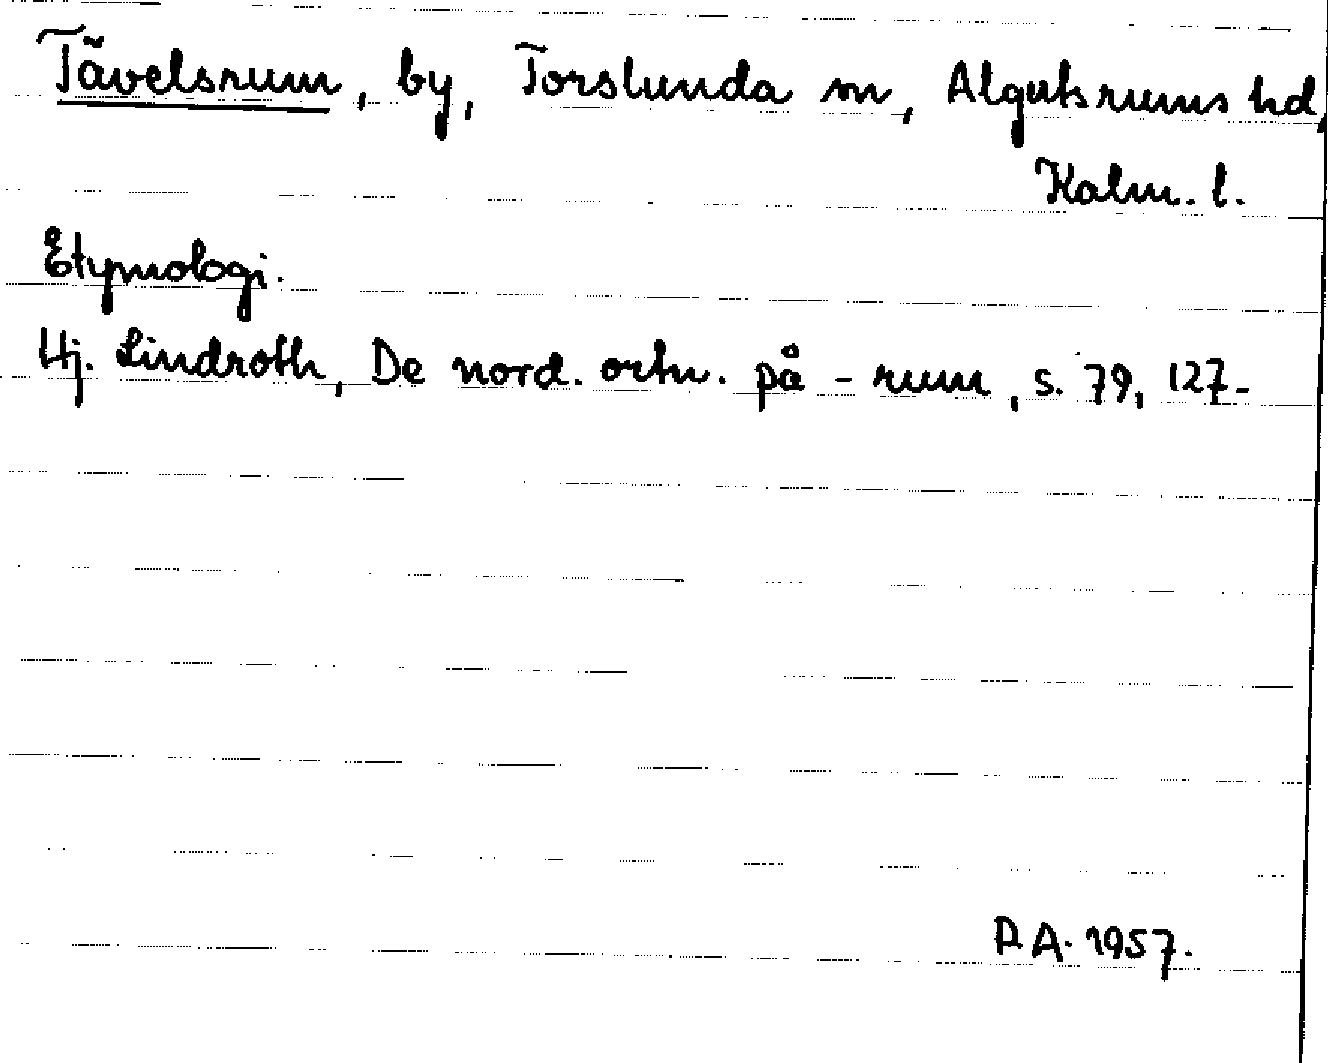 Tävelsrum, by, Torslunda sn, Algutsrums hd,
Kalm. l.
Etymologi.
Hj. Lindroth, De nord. ortn. på -rum, s. 79, 127.
R A. 1957.